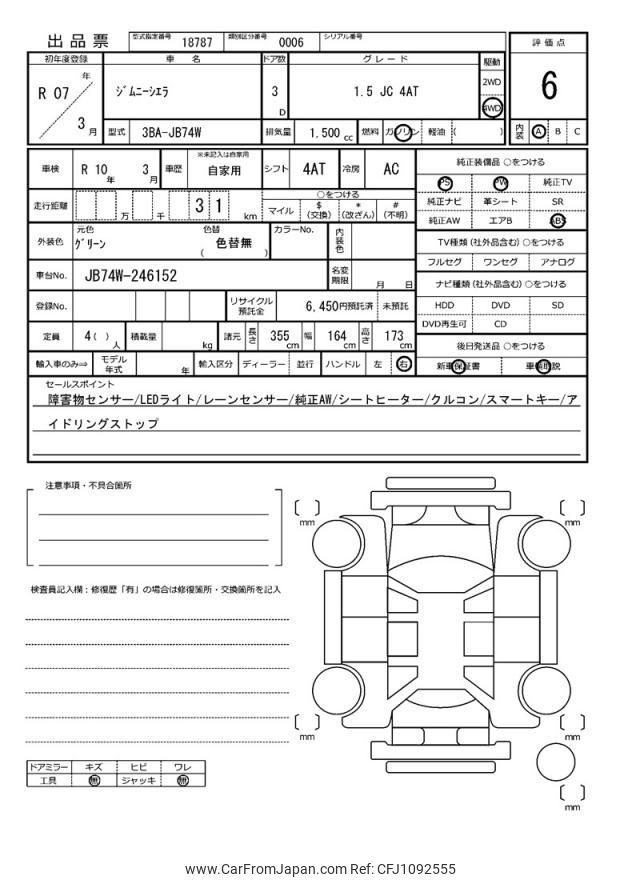 出品票 型式指定番号 18787 類別区分番号 0006 シリアル番号
評価点
6
内装 A B C
初年度登録 車名 ドア数 グレード 駆動
R 07 年 3 月 ジムニーシエラ 3 D 1.5 JC 4AT 2WD 4WD
型式 3BA-JB74W 排気量 1.500 cc 燃料 ガソリン 軽油 ( )
車検 R 10 年 3 月 車歴 ※未記入は自家用 自家用 シフト 4AT 冷房 AC
走行距離 万 千 3 1 km ○をつける
マイル $ (交換) * (改ざん) # (不明)
外装色 元色 グリーン 色替 色替無 ( ) カラーNo. 内装色
車台No. JB74W-246152 名変期限 月 日
登録No. リサイクル預託金 6,450円預託済 未預託
定員 4( ) 人 積載量 kg 諸元 長さ 355 cm 幅 164 cm 高さ 173 cm
輸入車のみ⇒ モデル年式 年 輸入区分 ディーラー 並行 ハンドル 左 右
純正装備品 ○をつける
PS PW 純正TV
純正ナビ 革シート SR
純正AW エアB ABS
TV種類 (社外品含む) ○をつける
フルセグ ワンセグ アナログ
ナビ種類 (社外品含む) ○をつける
HDD DVD SD
DVD再生可 CD
後日発送品 ○をつける
新車保証書 車輌取説
セールスポイント
障害物センサー/LEDライト/レーンセンサー/純正AW/シートヒーター/クルコン/スマートキー/ア
イドリングストップ
注意事項・不具合箇所
検査員記入欄：修復歴「有」の場合は修復箇所・交換箇所を記入
ドアミラー キズ ヒビ ワレ
工具 無 ジャッキ 無
[ ] mm
[ ] mm
[ ] mm
[ ] mm
[ ] mm
www.CarFromJapan.com Ref: CFJ1092555